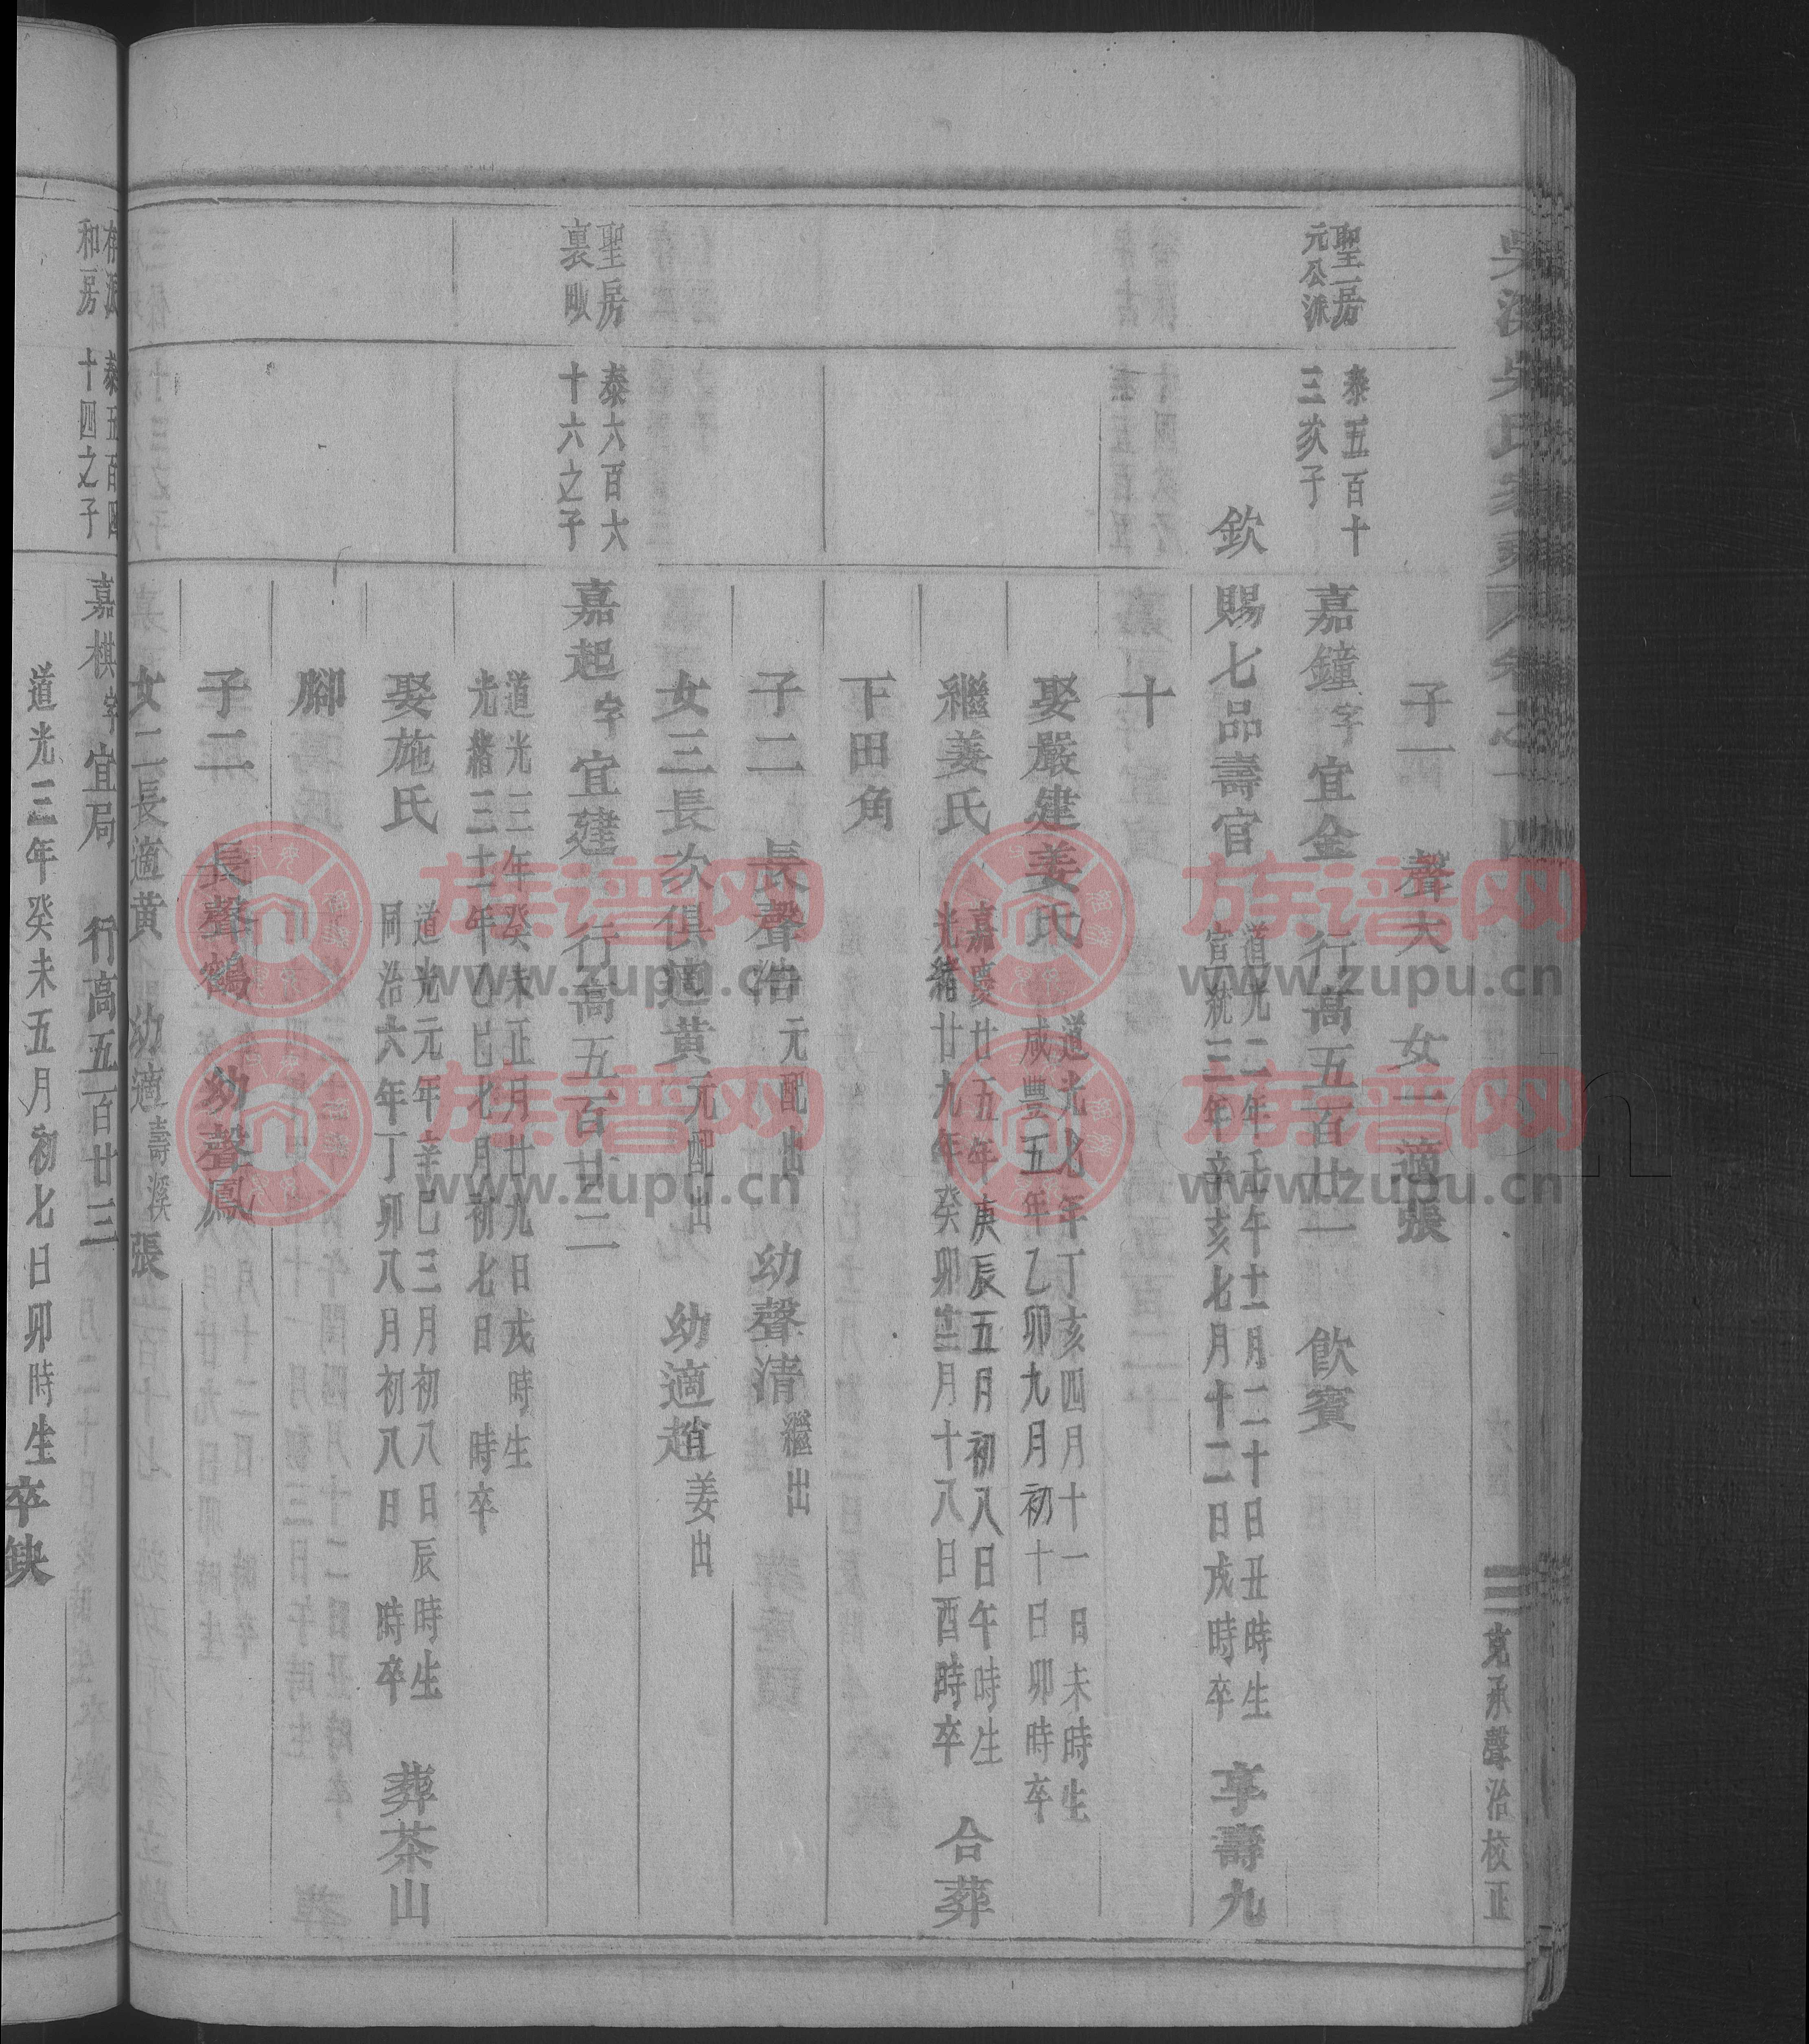 吳溪吳氏家乘 卷之一四
三 克承聲治校正
子一 聲大 女一 適張
聖一房
元公派
泰五百十
三次子
嘉鐘字 宜金 行高五百廿一 飲賓
欽
賜七品壽官
道光二年壬午十一月二十日丑時生
宣統三年辛亥七月十二日戌時卒
享壽九
十
娶嚴建姜氏
道光七年丁亥四月十一日未時生
咸豐五年乙卯九月初十日卯時卒
繼姜氏
嘉慶廿五年庚辰五月初八日午時生
光緒廿九年癸卯三月十八日酉時卒
合葬
下田角
子二 長聲浩 元配出 幼聲清 繼出
女三長次俱適黄 元配出 幼適趙 姜出
聖一房
裏畈
泰六百六
十六之子
嘉起字 宜建 行高五百廿二
道光三年癸未正月廿九日戌時生
光緒三十一年乙巳七月初七日 時卒
娶施氏
道光元年辛巳三月初八日辰時生
同治六年丁卯八月初八日 時卒
葬茶山
腳
子二 長聲鶴 幼聲鳳
女二長適黄 幼適 壽溪 張
存源
和房
泰五百四
十四之子
嘉棋字 宜局 行高五百廿三
道光三年癸未五月初七日卯時生卒缺
www.zupu.cn
族谱网
www.zupu.cn
族谱网
www.zupu.cn
族谱网
www.zupu.cn
族谱网